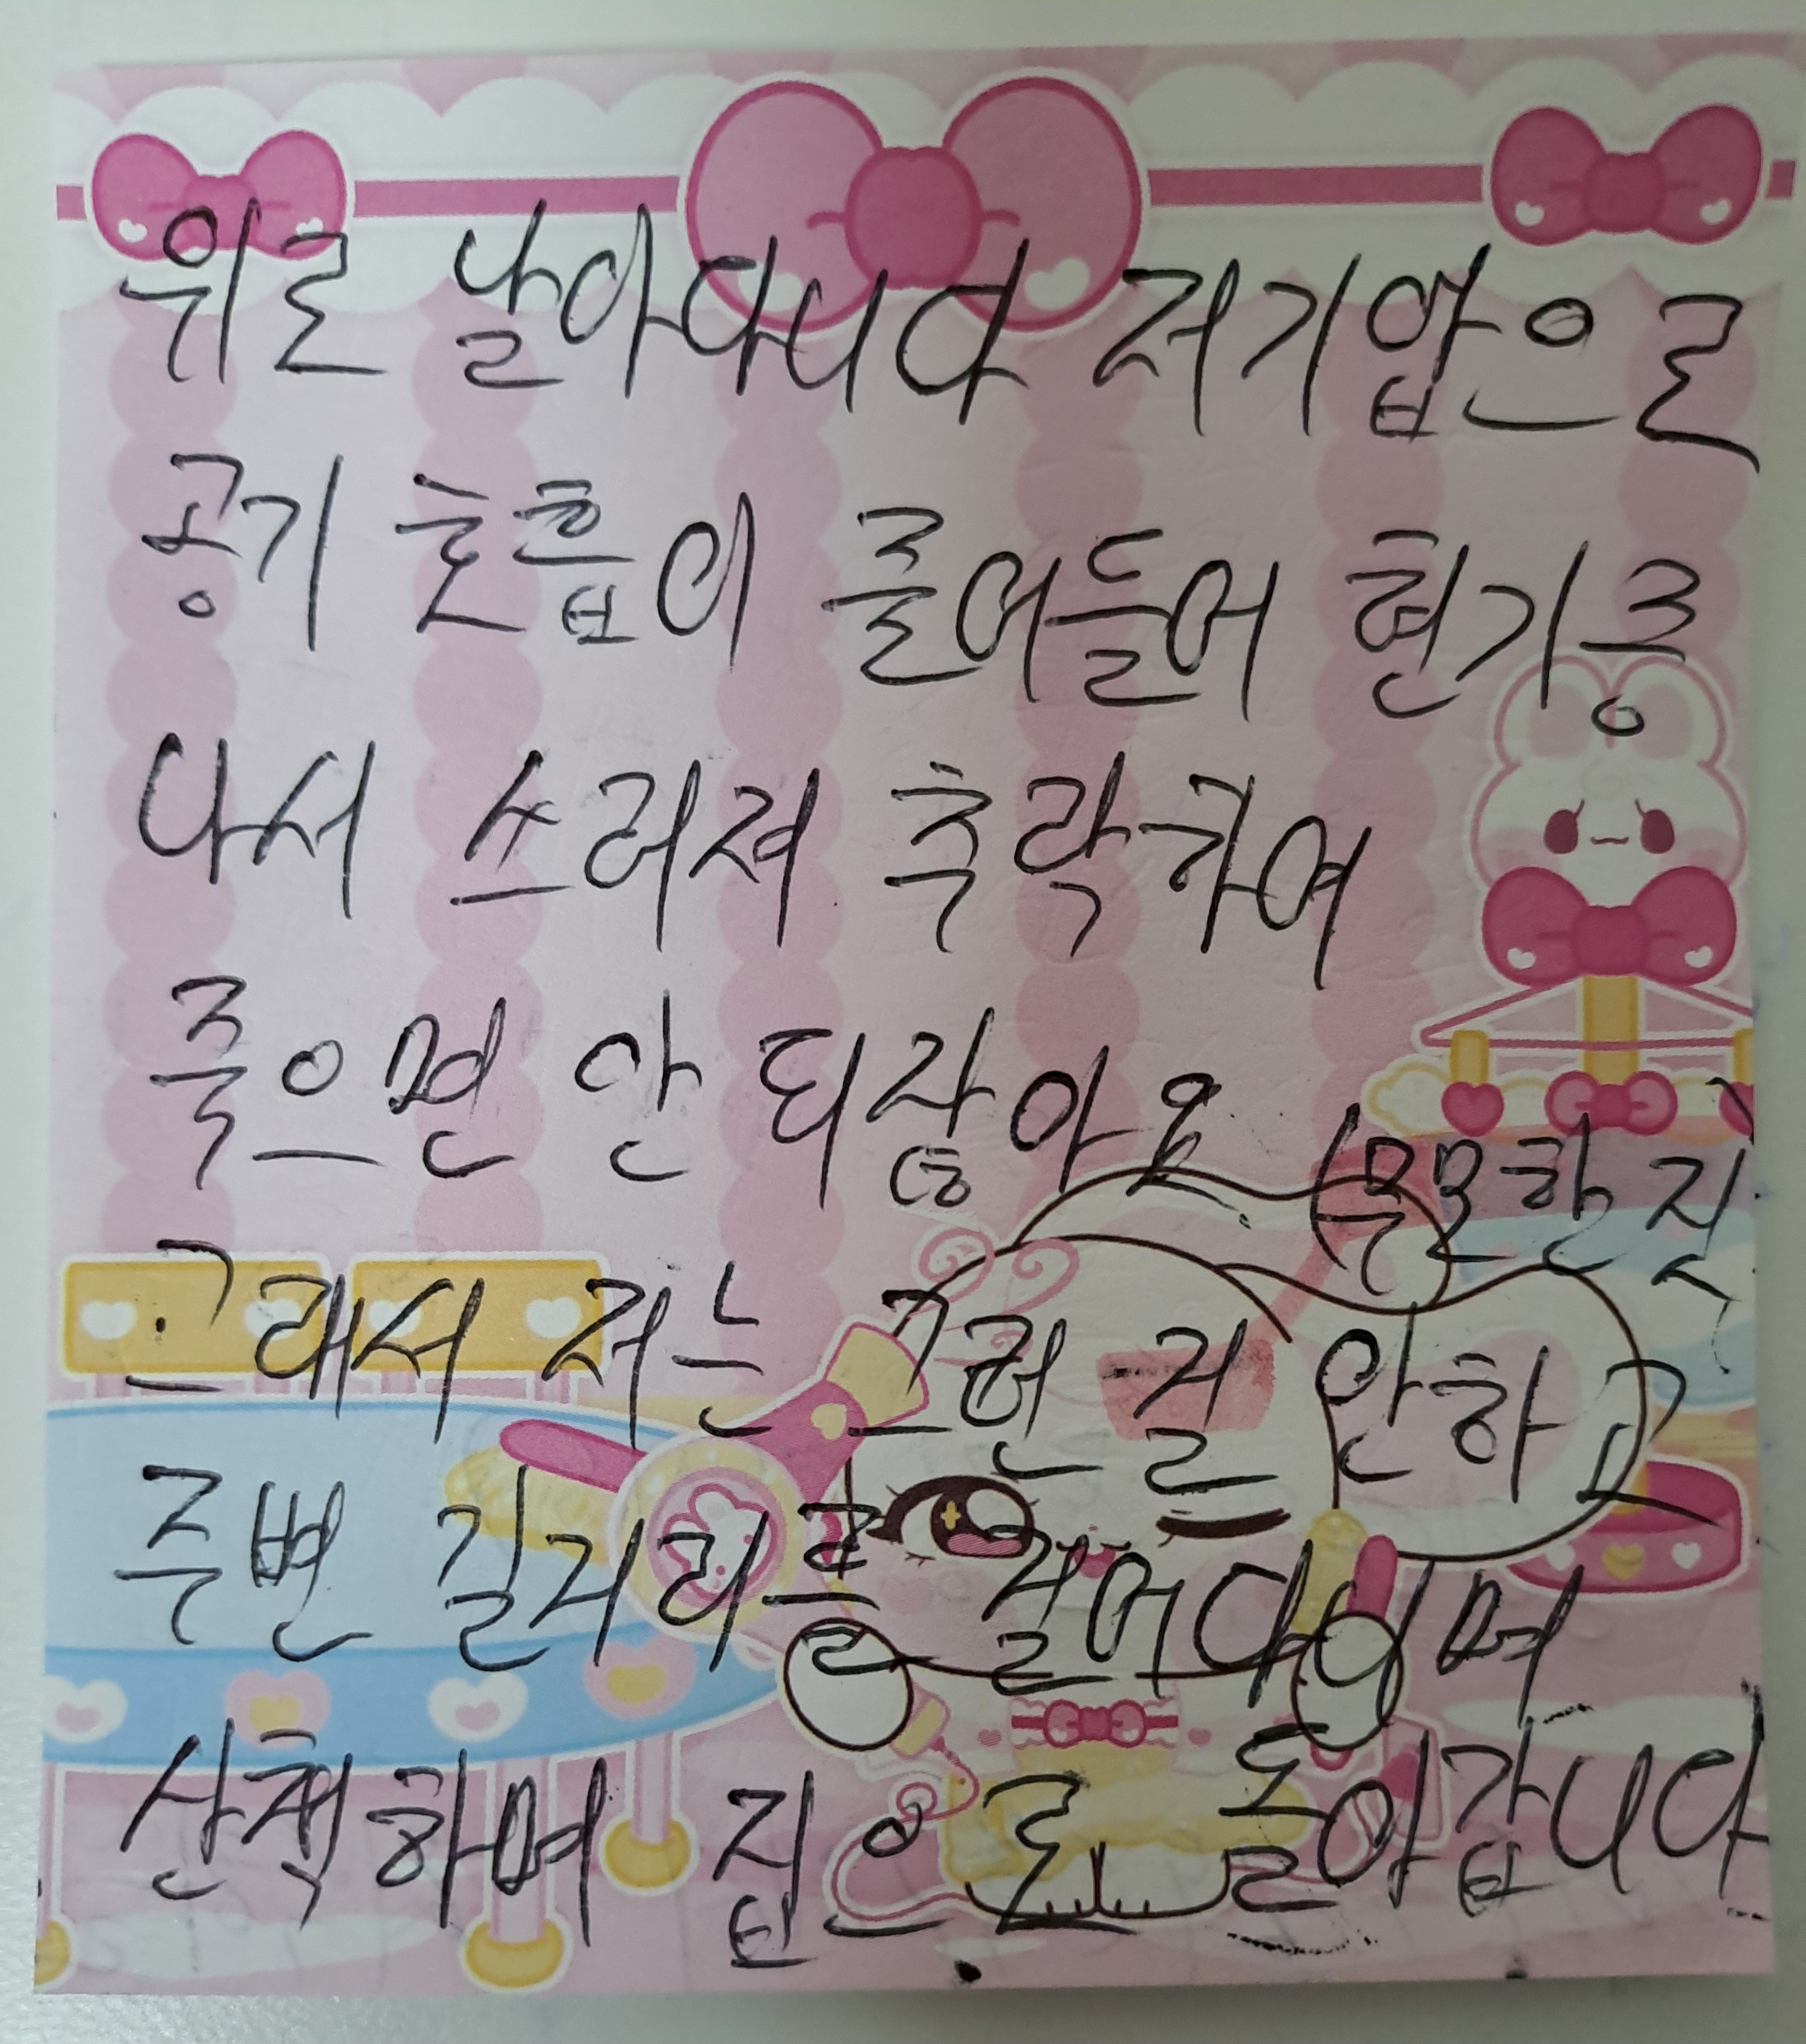 위로 날아다니다 저기압으로
공기 호흡이 줄어들어 현기증
나서 쓰러져 추락하여
죽으면 안 되잖아요
(무모한 짓
그래서 저는 그런 걸 안하고
주변 길거리를 걸어다니며
산책하며 집으로 돌아갑니다